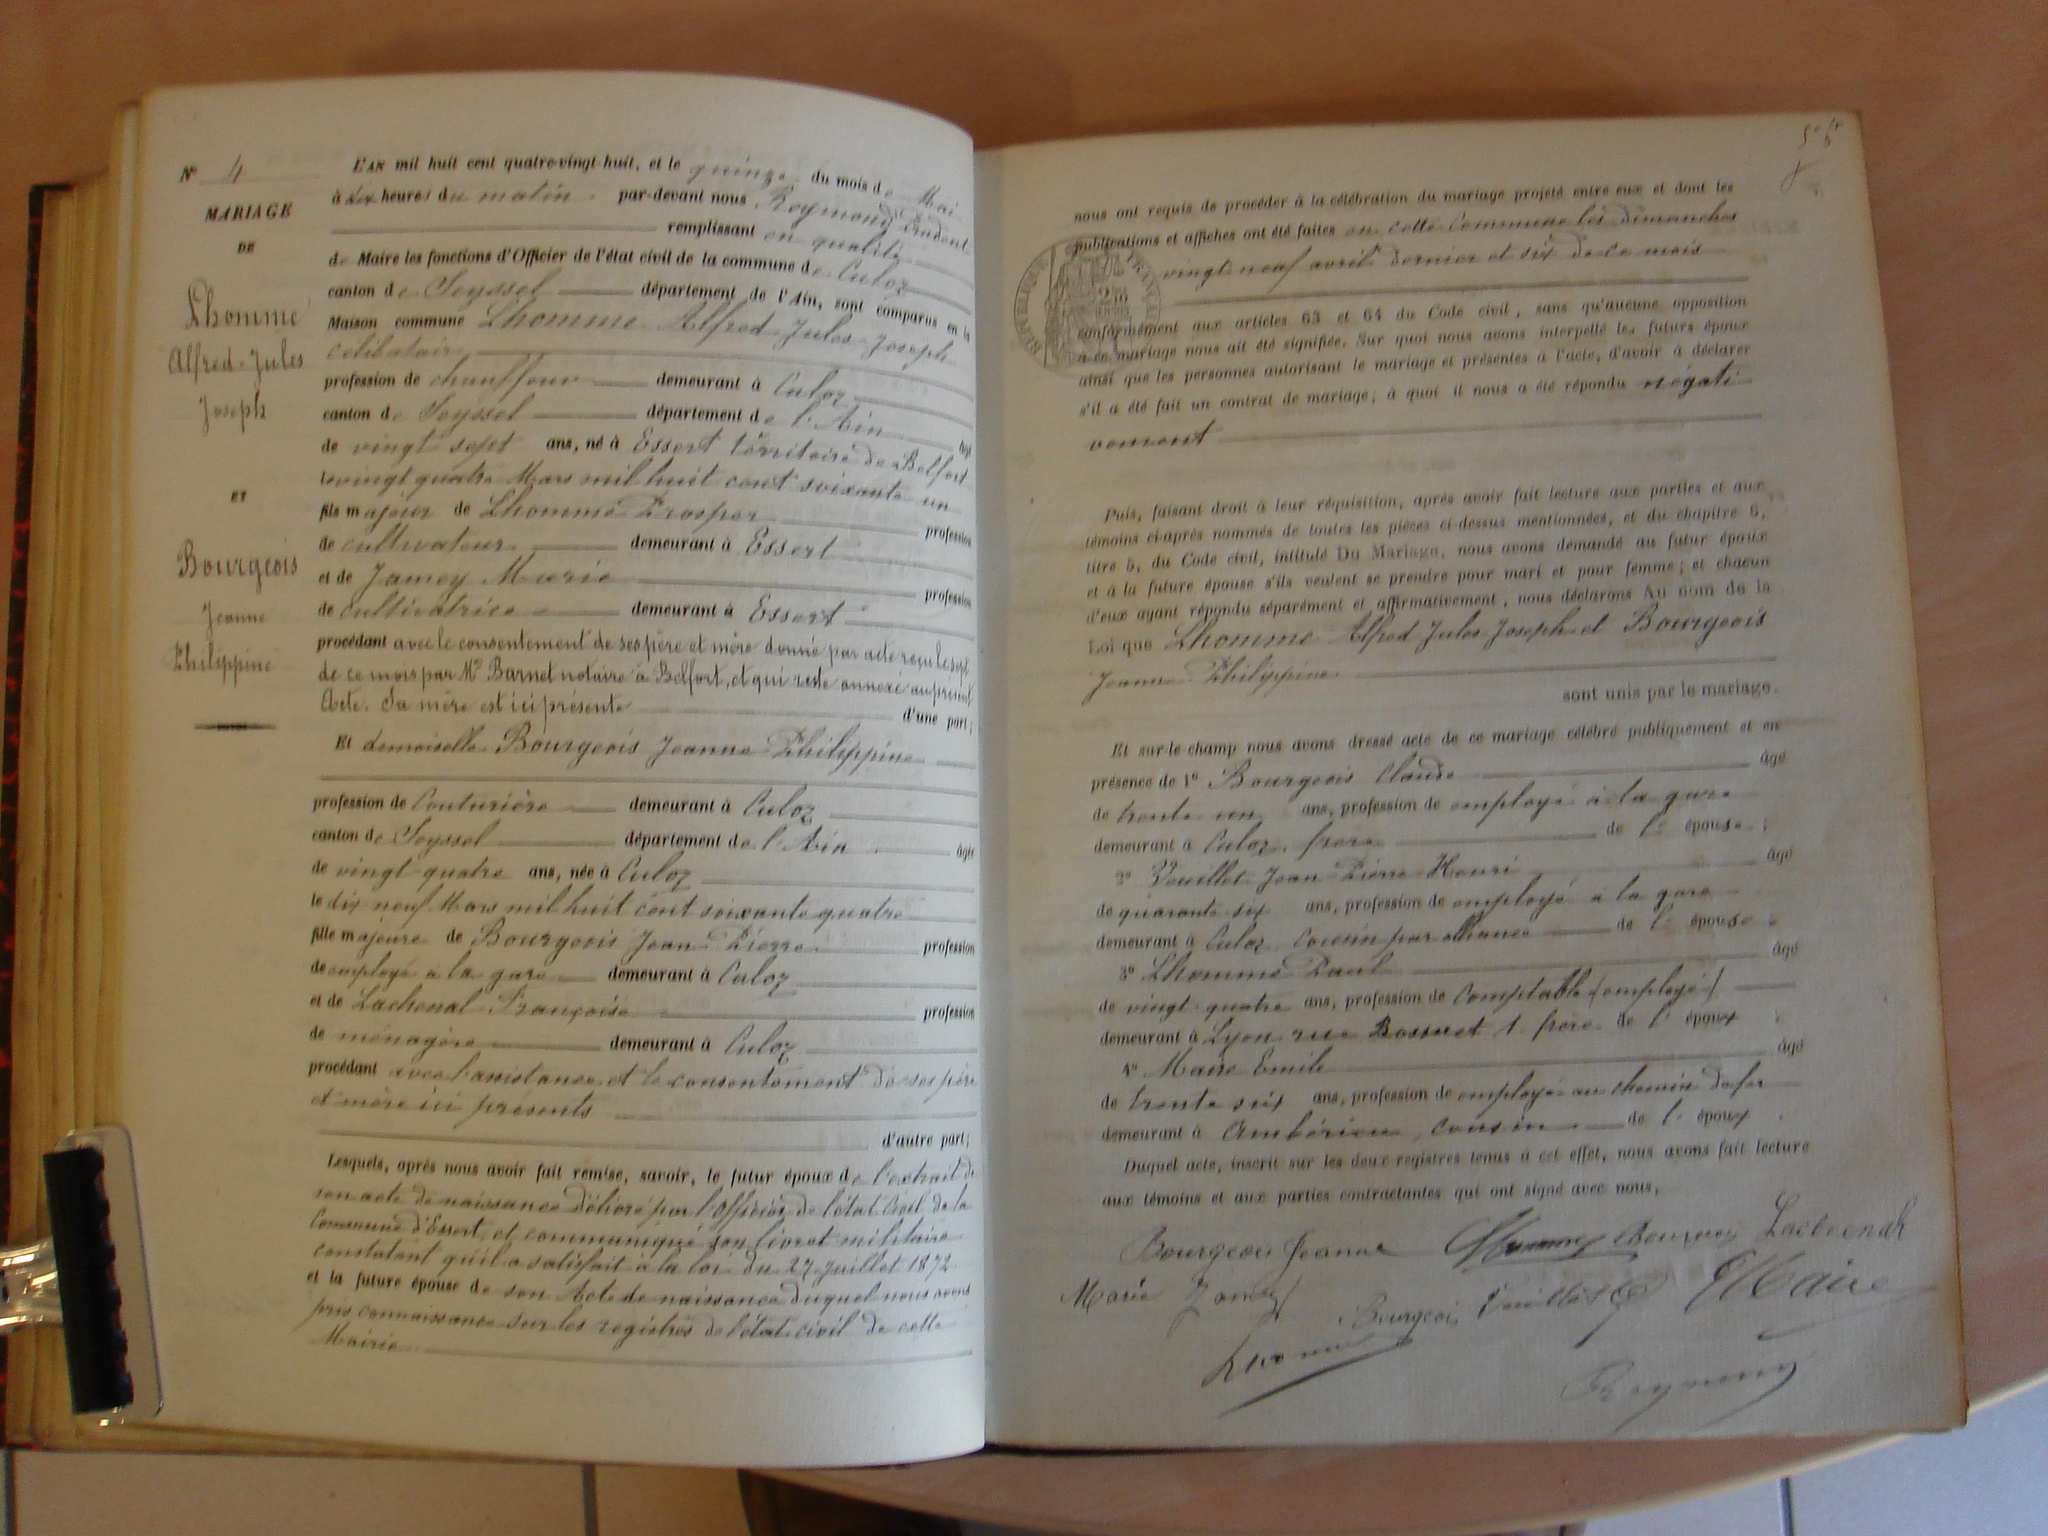 N° 4
MARIAGE
DE
Lhomme
Alfred-Jules
Joseph
ET
Bourgeois
Jeanne
Philippine
L'AN mil huit cent quatre-vingt-huit, et le quinze du mois de Mai
à dix heures du matin par-devant nous Reymond Prudent
remplissant en qualité
de Maire les fonctions d'Officier de l'état civil de la commune de Culoz
canton de Seyssel département de l'Ain, sont comparus en la
Maison commune Lhomme Alfred Jules Joseph
célibataire
profession de chauffeur demeurant à Culoz
canton de Seyssel département de l'Ain âgé
de vingt sept ans, né à Essert territoire de Belfort
le vingt quatre Mars mil huit cent soixante un
fils majeur de Lhomme Prosper profession
de cultivateur demeurant à Essert
et de Jamey Marie profession
de cultivatrice demeurant à Essert
procédant avec le consentement de ses père et mère donné par acte reçu le sept
de ce mois par Me Barnet notaire à Belfort, et qui reste annexé au présent
Acte. Sa mère est ici présente d'une part;
Et demoiselle Bourgeois Jeanne Philippine
profession de Couturière demeurant à Culoz
canton de Seyssel département de l'Ain âgée
de vingt quatre ans, née à Culoz
le dix neuf Mars mil huit cent soixante quatre
fille majeure de Bourgeois Jean Pierre profession
de employé à la gare demeurant à Culoz
et de Lachenal Françoise profession
de ménagère demeurant à Culoz
procédant avec l'assistance et le consentement de ses père
et mère ici présents
d'autre part;
Lesquels, après nous avoir fait remise, savoir, le futur époux de l'extrait de
son acte de naissance délivré par l'Officier de l'état Civil de la
Commune d'Essert, et communiqué son livret militaire
constatant qu'il a satisfait à la loi du 27 Juillet 1872
et la future épouse de son Acte de naissance duquel nous avons
pris connaissance sur les registres de l'état civil de cette
Mairie
nous ont requis de procéder à la célébration du mariage projeté entre eux et dont les
publications et affiches ont été faites en cette Commune les dimanches
vingt neuf avril dernier et six de ce mois
conformément aux articles 63 et 64 du Code civil, sans qu'aucune opposition
à ce mariage nous ait été signifiée. Sur quoi nous avons interpellé les futurs époux
ainsi que les personnes autorisant le mariage et présentes à l'acte, d'avoir à déclarer
s'il a été fait un contrat de mariage; à quoi il nous a été répondu négati
vement
Puis, faisant droit à leur réquisition, après avoir fait lecture aux parties et aux
témoins ci-après nommés de toutes les pièces ci-dessus mentionnées, et du chapitre 6,
titre 5, du Code civil, intitulé Du Mariage, nous avons demandé au futur époux
et à la future épouse s'ils veulent se prendre pour mari et pour femme; et chacun
d'eux ayant répondu séparément et affirmativement, nous déclarons Au nom de la
Loi que Lhomme Alfred Jules Joseph et Bourgeois
Jeanne Philippine
sont unis par le mariage.
Et sur-le-champ nous avons dressé acte de ce mariage célébré publiquement et en
présence de 1° Bourgeois Claude âgé
de trente un ans, profession de employé à la gare
demeurant à Culoz, frère de l'épouse;
2° Vouillet Jean Pierre Henri âgé
de quarante six ans, profession de employé à la gare
demeurant à Culoz, Cousin par alliance de l'épouse
3° Lhomme Paul âgé
de vingt-quatre ans, profession de Comptable (employé)
demeurant à Lyon rue Bossuet 1 frère de l'époux
4° Maire Emile âgé
de trente six ans, profession de employé au chemin de fer
demeurant à Ambérieu, cousin de l'époux
Duquel acte, inscrit sur les deux registres tenus à cet effet, nous avons fait lecture
aux témoins et aux parties contractantes qui ont signé avec nous.
Bourgeois Jeanne Lhomme Bourgeois Lachenal
Marie Jamey Bourgeois Vouillet EMaire
Lhomme
Reymond